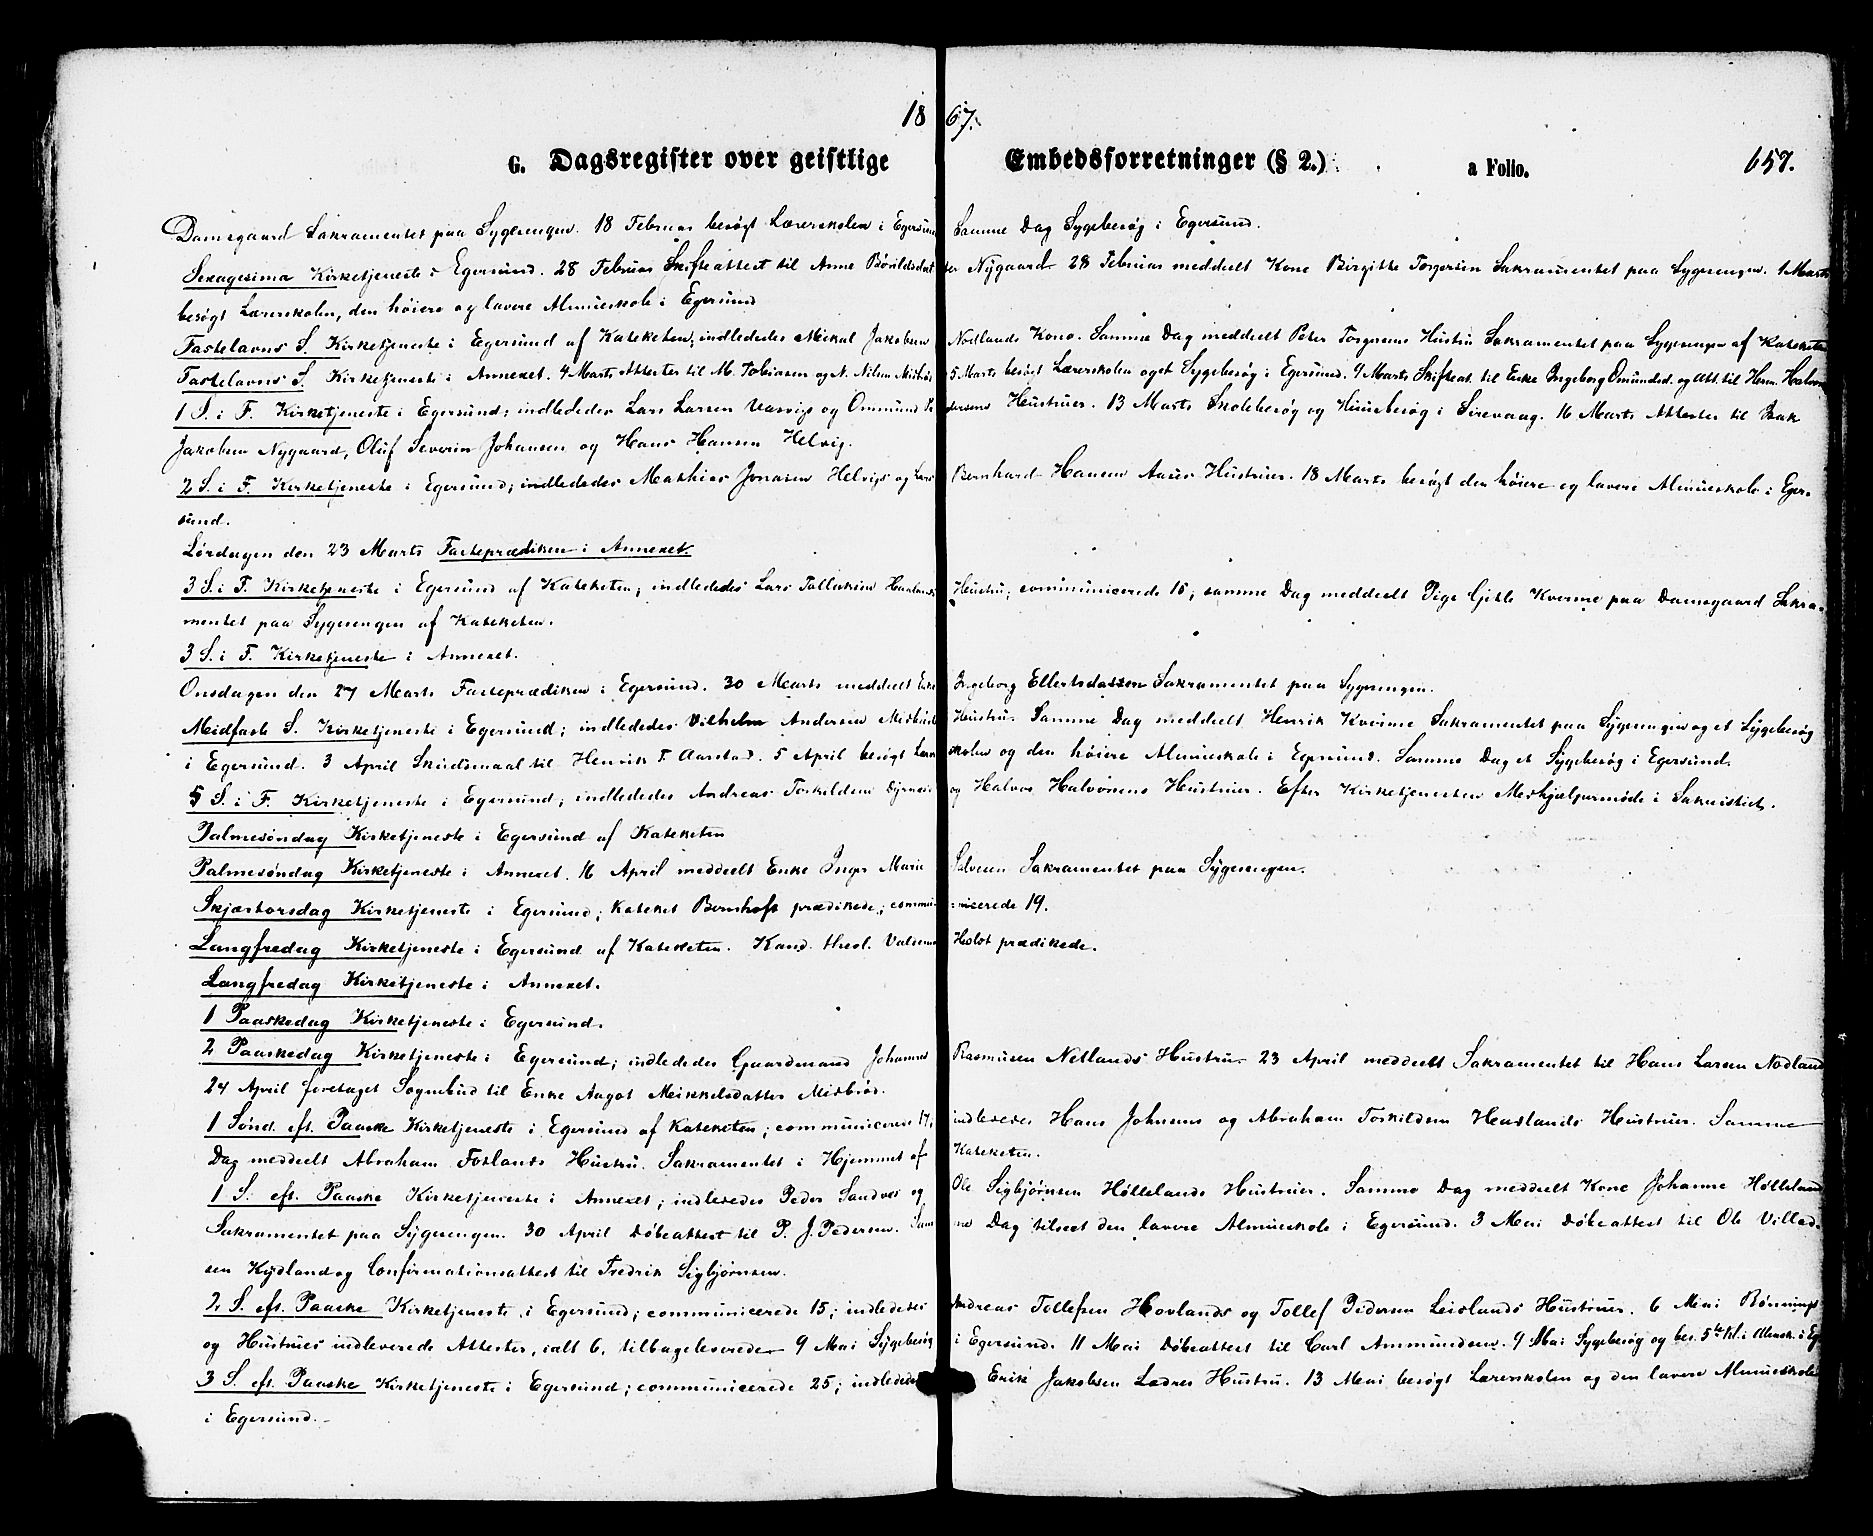 1867.
G. Dagsregister over geistlige Embedsforretninger (§ 2.) a Folio. 657.
Damsgaard Sakramentet paa Sygesengen. 18 Februar besøgt Lærerskolen i Egersund Samme Dag Sygebesøg i Egersund.
Sexagesima Kirketjeneste i Egersund. 28 Februar Skifteattest til Anne Nygaard 28 Februar meddelt Kone Birgitte Torgersen Sakramentet paa Sygesengen. 1 Marts
besøgt Lærerskolen, den høiere og lavere Almueskole i Egersund
Fastelavns S. Kirketjeneste i Egersund af Kateketen; indledes Mikal Jakobsen Nodlands Kone. Samme Dag meddelt Peter Torgersens Hustru Sakramentet paa Sygesengen af Kateketen
Fastelavns S. Kirketjeneste i Annexet. 4 Marts Attester til M. Tobiasen og N. Nilsen 5 Marts besøgt Lærerskolen og et Sygebesøg i Egersund. 9 Marts Skifteat. til Enke Ingeborg Omundsd. og Att. til Henr. Halvor
1 S. i F. Kirketjeneste i Egersund; indlededes Lars Larsen og Ommund Hustruer. 13 Marts Skolebesøg og Huusbesøg i Sirevaag. 16 Marts Attester til Isak
Jakobsen Nygaard, Oluf Severin Johansen og Hans Hansen Helvig.
2 S. i F. Kirketjeneste i Egersund; indlededes Mathias Jonasen Helvigs og Lars Bernhard Hansen Aases Hustruer. 18 Marts besøgt den høiere og lavere Almueskole i Eger-
sund.
Lørdagen den 23 Marts Fasteprædiken i Annexet.
3 S. i F. Kirketjeneste i Egersund af Kateketen; indlededes Lars Tollaksen Hustru; communicerede 15; samme Dag meddeelt Pige Gitle Kverme paa Damsgaard Sakra-
mentet paa Sygesengen af Kateketen.
3 S. i F. Kirketjeneste i Annexet.
Onsdagen den 27 Marts Fasteprædiken i Egersund. 30 Marts meddeelt Enke Ingeborg Ellertsdatter Sakramentet paa Sygesengen.
Midfaste S. Kirketjeneste i Egersund; indlededes Vilhelm Andersen Hustru. Samme Dag meddeelt Henrik Kverme Sakramentet paa Sygesengen og et Sygebesøg
i Egersund. 3 April Skudsmaal til Henrik T. Aarstad. 5 April besøgt Lærerskolen og den høiere Almueskole i Egersund. Samme Dag et Sygebesøg i Egersund.
5 S. i F. Kirketjeneste i Egersund; indlededes Andreas Torkildsen og Halvor Halvorsens Hustruer. Efter Kirketjenesten Medhjælpermøde i Sakristiet.
Palmesøndag Kirketjeneste i Egersund af Kateketen
Palmesøndag Kirketjeneste i Annexet. 16 April meddeelt Enke Inger Marie Salvesen Sakramentet paa Sygesengen.
Skjærtorsdag Kirketjeneste i Egersund; Kateket Bernhoft prædikede; communicerede 19.
Langfredag Kirketjeneste i Egersund af Kateketen. Kand. theol. Holst prædikede.
Langfredag Kirketjeneste i Annexet.
1 Paaskedag Kirketjeneste i Egersund.
2 Paaskedag Kirketjeneste i Egersund; indlededes Gaardmand Johannes Rasmusen Netlands Hustru. 23 April meddeelt Sakramentet til Hans Larsen Nodland
24 April foretaget Sognebud til Enke Aagot Mikkelsdatter Misbrod.
1 Sønd. eft. Paaske Kirketjeneste i Egersund af Kateketen; communicerede 17, indledes Hans Johnsens og Abraham Torkildsen Hustruer. Samme
Dag meddeelt Abraham Foslands Hustru Sakramentet i Hjemmet af Kateketen.
1 S. eft. Paaske Kirketjeneste i Annexet; indledes Peder Sandves og Ole Sigbjørnsen Høllelands Hustruer. Samme Dag meddeelt Kone Johanne Hølleland
Sakramentet paa Sygesengen. 30 April Døbeattest til P. J. Pedersen. Samme Dag tilseet den lavere Almueskole i Egersund. 3 Mai Døbeattest til Ole Villad-
sen Kydland og Confirmationsattest til Fredrik Sigbjørnsen.
2 S. eft. Paaske Kirketjeneste i Egersund; communicerede 15; indledes Andreas Tollefsen Hovlands og Tollef Pedersen Leidlands Hustruer. 6 Mai
og Hustrues indleverede Attester, ialt 6, tilbageleverede. 9 Mai Sygebesøg i Egersund. 11 Mai Døbeattest til Carl Ammundsen. 9 Mai Sygebesøg og bes. 5te Kl. i Almsk. i Eg
3 S. eft. Paaske Kirketjeneste i Egersund; communicerede 25; indlededes Erik Jakobsen Hustru. 13 Mai besøgt Lærerskolen og den lavere Almueskole
i Egersund.